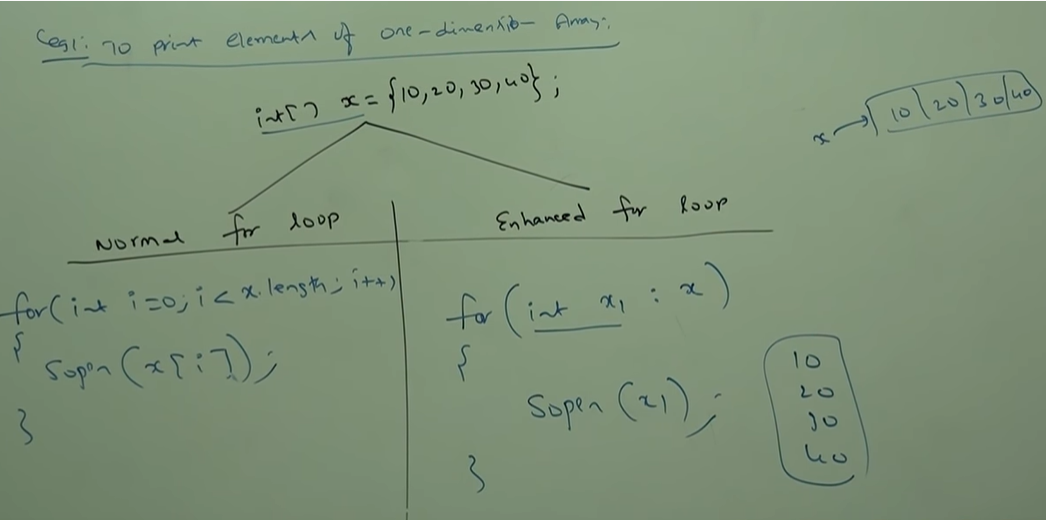 Case1: To print elements of one-dimension Array:
int[] x = {10,20,30,40};
x → 10 | 20 | 30 | 40
Normal for loop
for(int i=0; i< x.length; i++)
{
Sopln(x[i]);
}
Enhanced for loop
for(int x1 : x)
{
Sopln(x1);
}
10
20
30
40